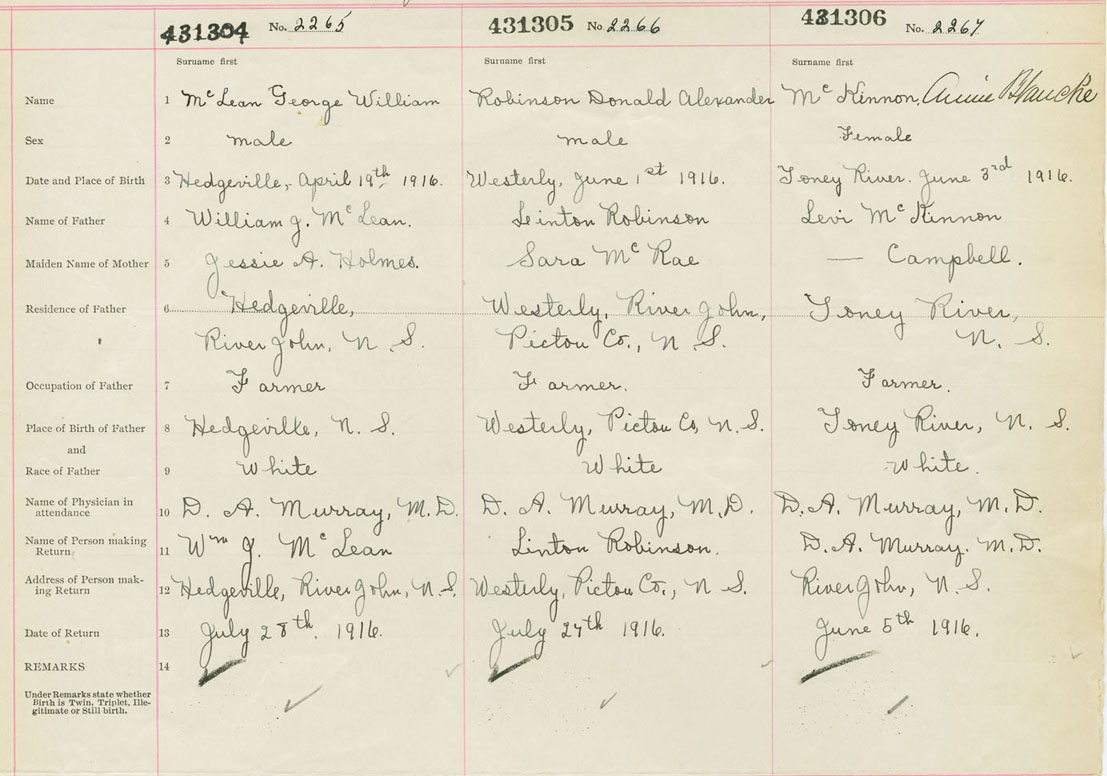 431304 No. 2265 431305 No 2266 431306 No. 2267
Surname first Surname first Surname first
Name 1 McLean George William Robinson Donald Alexander McKinnon, Annie Blanche
Sex 2 male male Female
Date and Place of Birth 3 Hedgeville, April 19th 1916. Westerly, June 1st 1916. Toney River. June 3rd 1916.
Name of Father 4 William J. McLean. Linton Robinson Levi McKinnon
Maiden Name of Mother 5 Jessie A. Holmes. Sara McRae — Campbell.
Residence of Father 6 Hedgeville, Westerly, River John, Toney River,
River John, N.S. Pictou Co., N.S. N.S.
Occupation of Father 7 Farmer Farmer. Farmer.
Place of Birth of Father 8 Hedgeville, N.S. Westerly, Pictou Co, N.S. Toney River, N.S.
and
Race of Father 9 White White White.
Name of Physician in
attendance 10 D. A. Murray, M.D. D. A. Murray, M.D. D.A. Murray, M.D.
Name of Person making
Return 11 Wm J. McLean Linton Robinson. D.A. Murray. M.D.
Address of Person mak-
ing Return 12 Hedgeville, River John, N.S. Westerly, Pictou Co., N S. River John, N.S.
Date of Return 13 July 28th. 1916. July 27th 1916. June 5th 1916.
REMARKS 14
Under Remarks state whether
Birth is Twin, Triplet, Ille-
gitimate or Still birth.